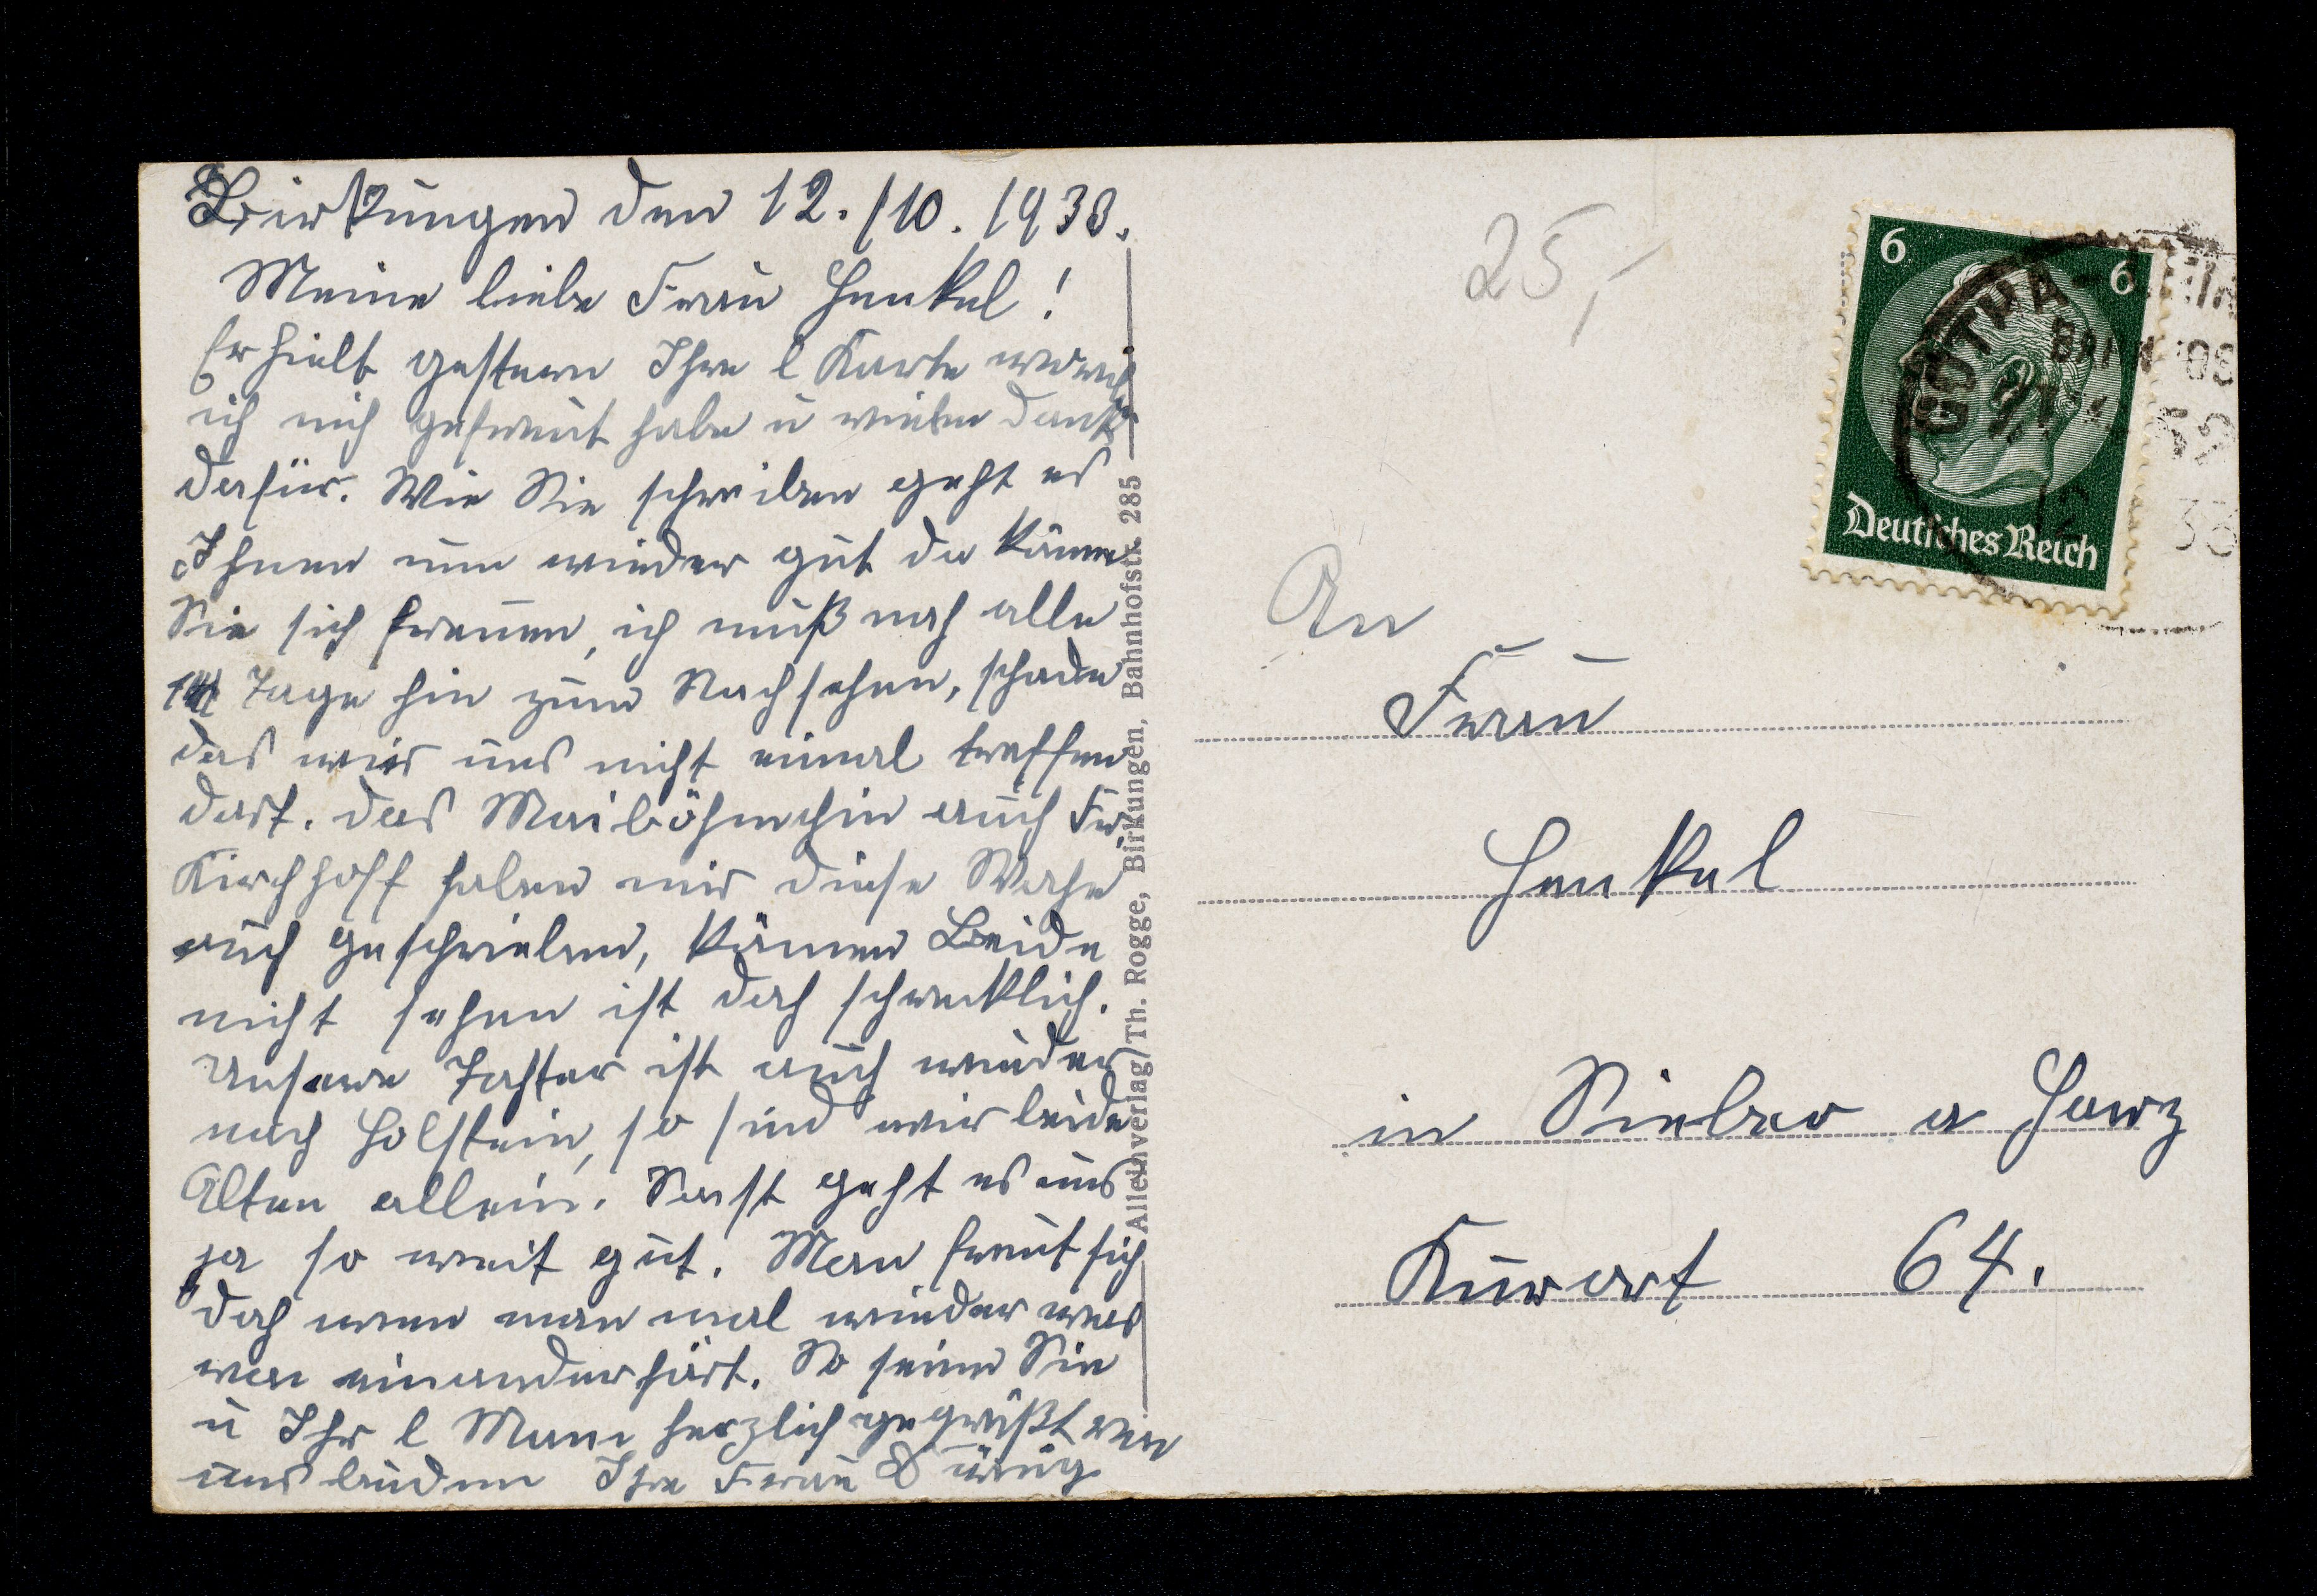 Birkungen den 12./10. 1938.
Meine liebe Frau Henkel!
Erhielt gestern Ihre l Karte worüber
ich mich gefreut habe u vielen Dank
dafür. Wie Sie schreiben geht es
Ihnen nun wieder gut da können
Sie sich freuen, ich muß noch alle
14 Tage hin zum Nachsehen, schade
das wir uns nicht einmal treffen
dort. Das auch Fr.
Kirchhoff haben mir diese Woche
auch geschrieben, können Beide
nicht sehen ist doch schrecklich.
Unsere Tochter ist auch wieder
nach Holstein, so sind wir beide
Alten allein. Sonst geht es uns
ja so weit gut. Man freut sich
doch wenn man mal wieder was
von einander hört. So seien Sie
u Ihr l Mann herzlich gegrüßt von
uns beiden Ihre Frau
Alleinverlag Th. Rogge, Birkungen, Bahnhofstr. 285
25,-
6 6
GOTHA
Deutsches Reich
An
Frau
Henkel
in Sieber a Harz
Kurort 64.